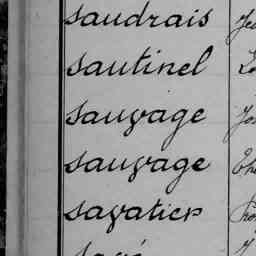 saudrais Je
sautinel
sauvage
sauvage
savatier
savé